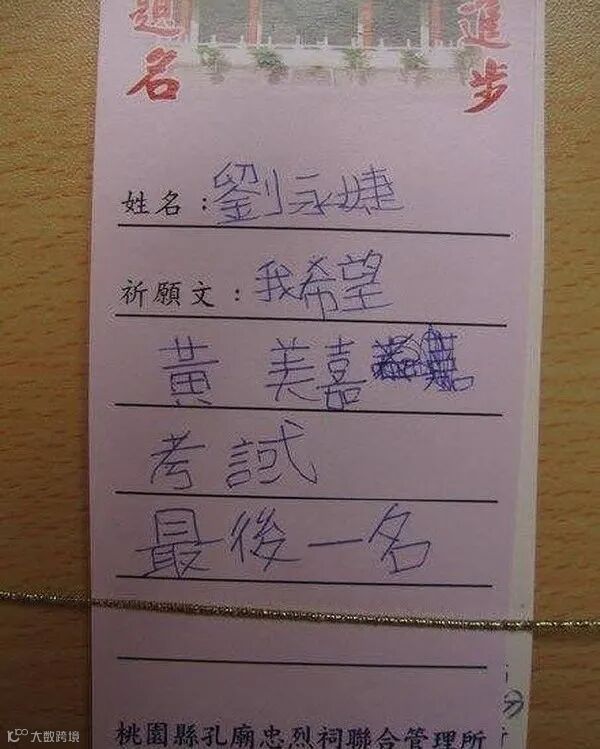 進步
名
姓名：劉永婕
祈願文：我希望
黃美嘉
考試
最後一名
桃園縣孔廟忠烈祠聯合管理所
大数跨境